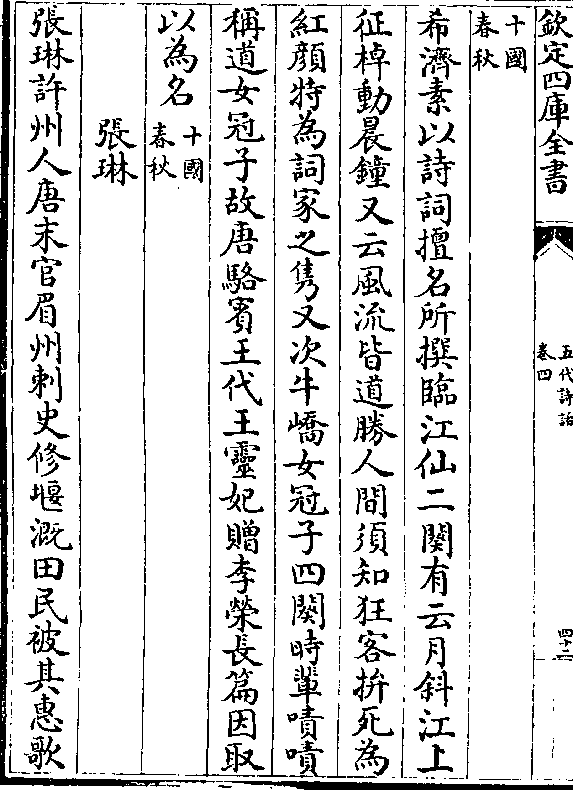 欽定四庫全書
五代詩話
卷四
四十二
十國
春秋
希濟素以詩詞擅名所撰臨江仙二闋有云月斜江上
征棹動晨鐘又云風流皆道勝人間須知狂客拚死為
紅顔特為詞家之雋又次牛嶠女冠子四闋時輩嘖嘖
稱道女冠子故唐駱賓王代王靈妃贈李榮長篇因取
以為名十國
春秋
張琳
張琳許州人唐末官眉州刺史修堰溉田民被其惠歌